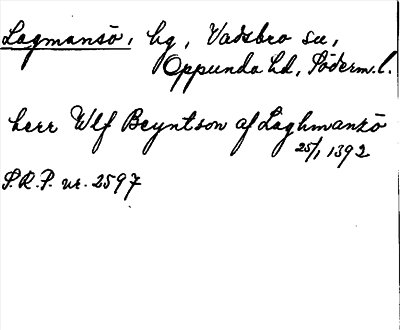 Lagmansö, hg, Vadsbro sn,
Oppunda hd, Söderm.l.
herr Wlf Beyntson af Laghmansö
25/1 1392
S.R.P. nr. 2597